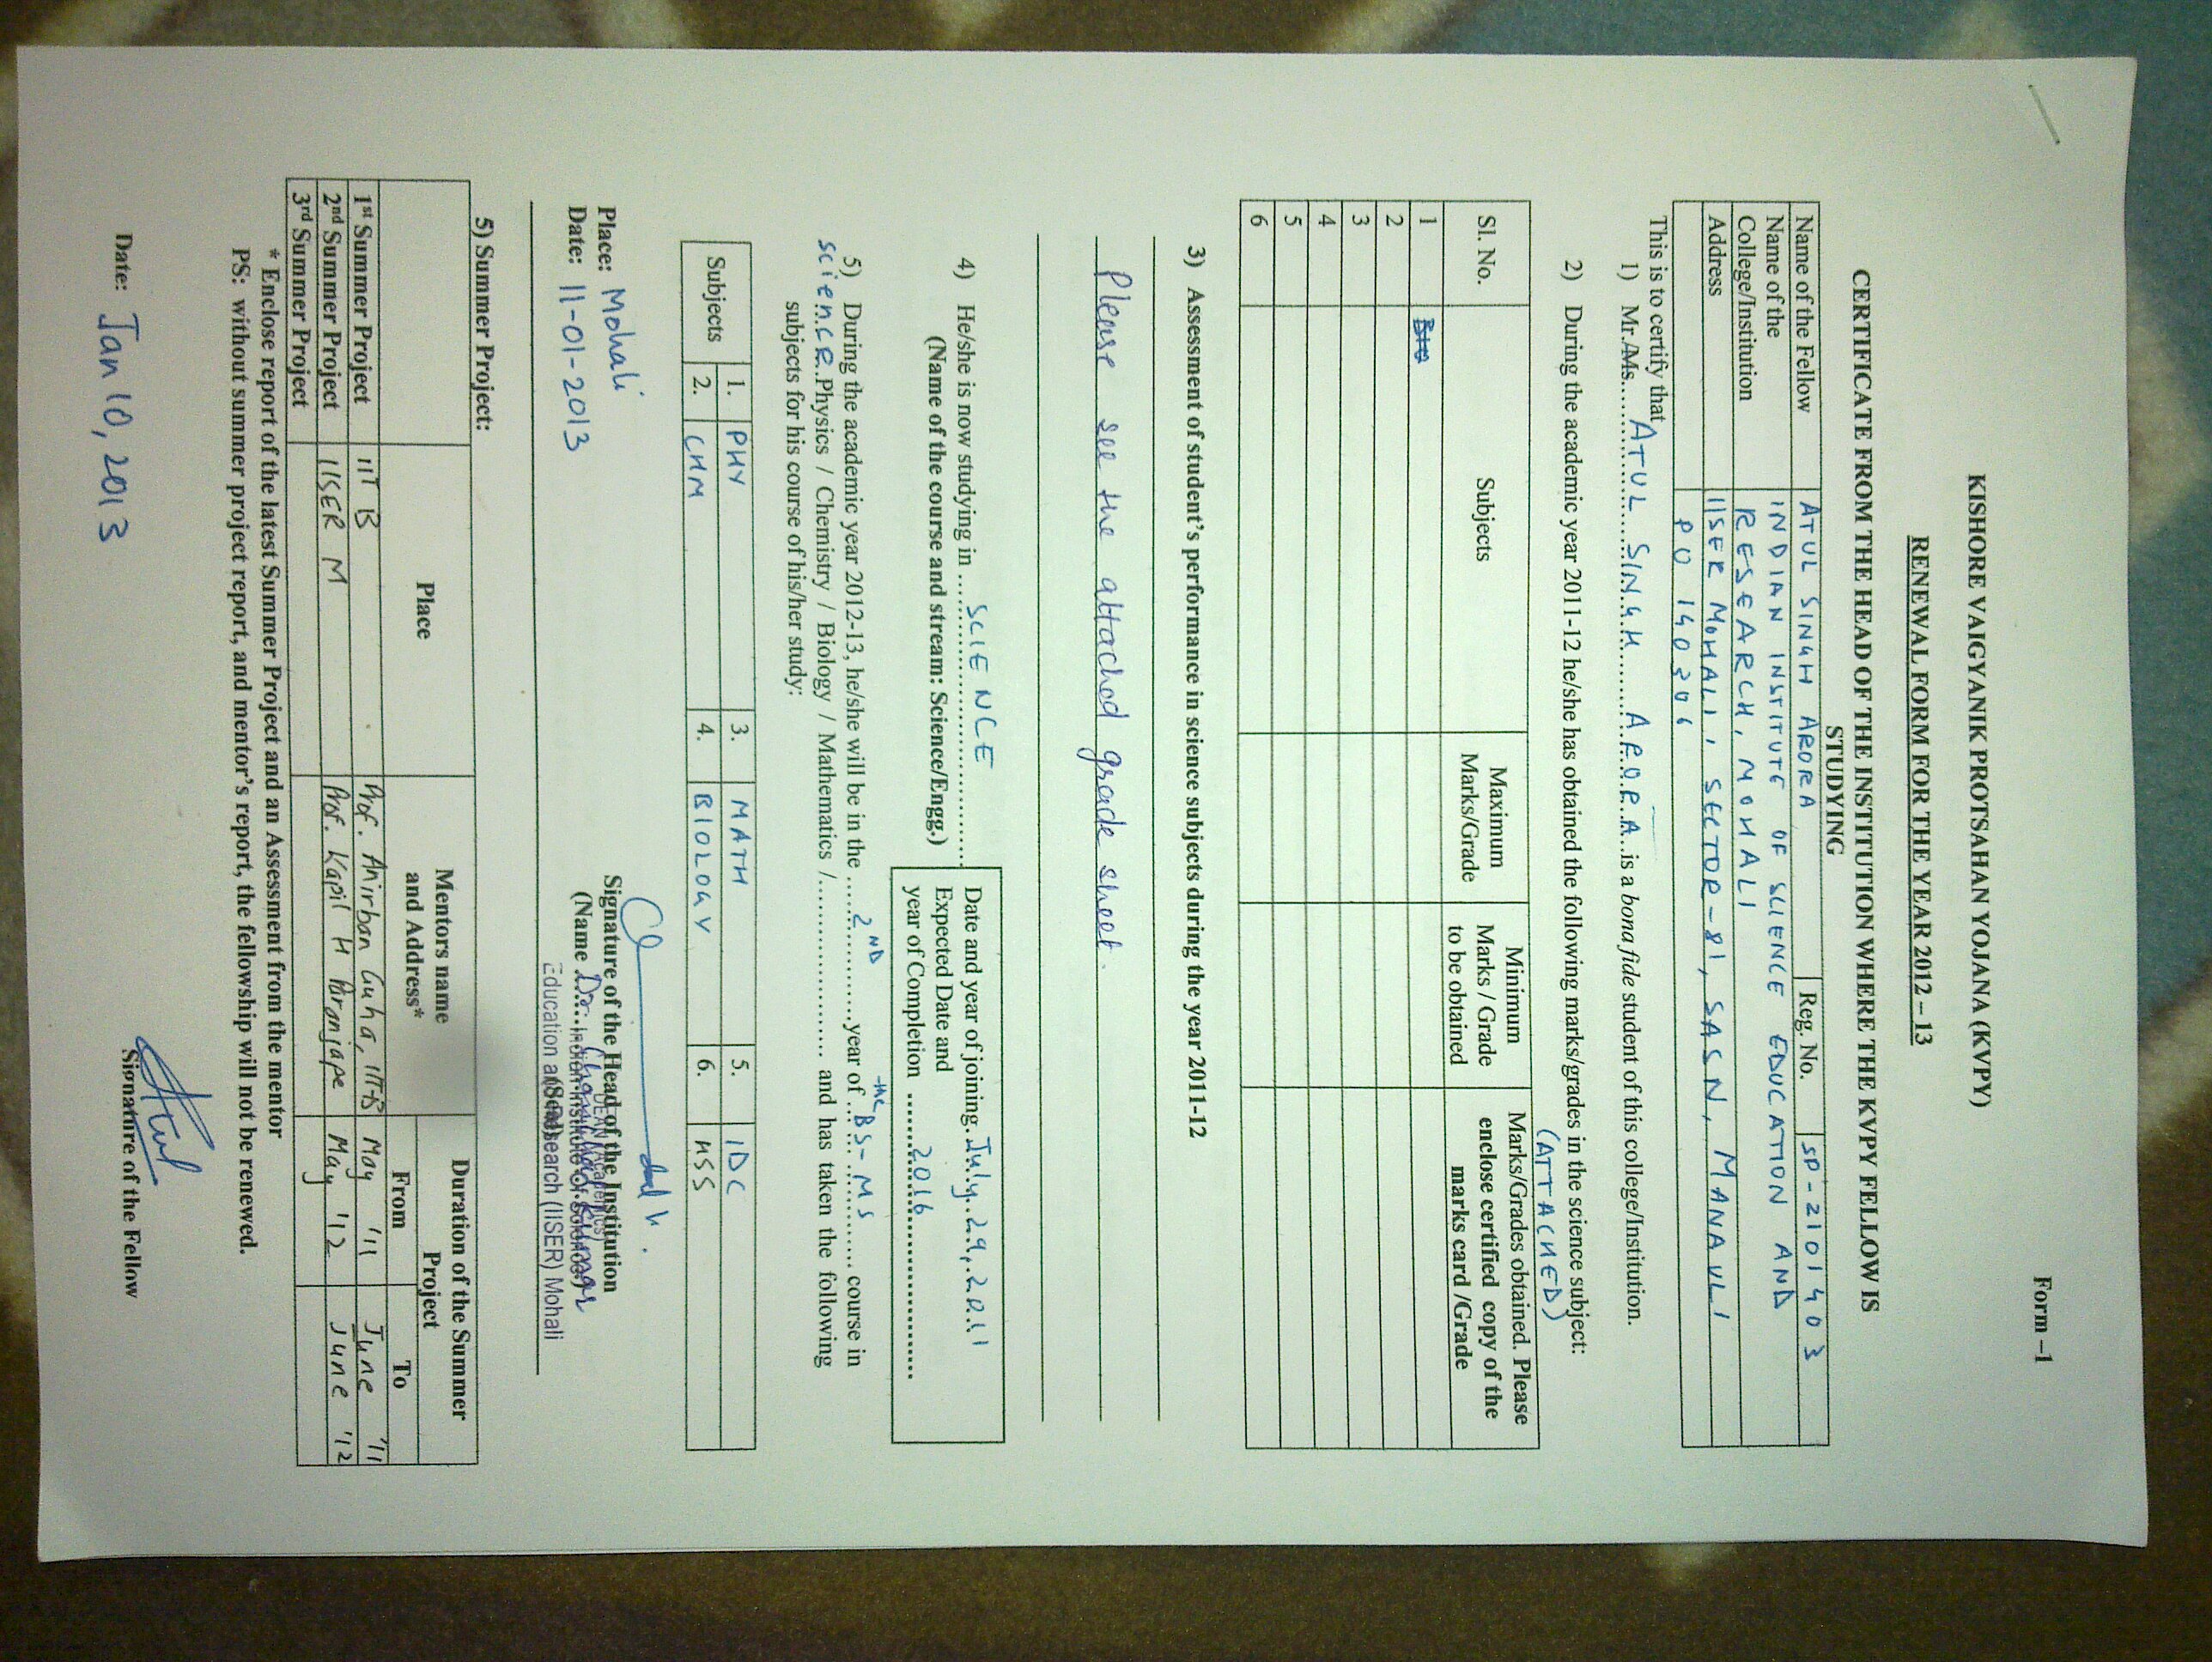 Form –1
KISHORE VAIGYANIK PROTSAHAN YOJANA (KVPY)
RENEWAL FORM FOR THE YEAR 2012 – 13
CERTIFICATE FROM THE HEAD OF THE INSTITUTION WHERE THE KVPY FELLOW IS
STUDYING
Name of the Fellow ATUL SINGH ARORA Reg. No. SP-2101403
Name of the INDIAN INSTITUTE OF SCIENCE EDUCATION AND
College/Institution RESEARCH, MOHALI
Address IISER MOHALI, SECTOR-81, SASN, MANAULI
PO 140306
This is to certify that
1) Mr./Ms. ATUL SINGH ARORA is a bona fide student of this college/Institution.
2) During the academic year 2011-12 he/she has obtained the following marks/grades in the science subject:
(ATTACHED)
Sl. No. Subjects Maximum Marks/Grade Minimum Marks / Grade to be obtained Marks/Grades obtained. Please enclose certified copy of the marks card /Grade
1 Bio
2
3
4
5
6
3) Assessment of student's performance in science subjects during the year 2011-12
Please see the attached grade sheet.
4) He/she is now studying in SCIENCE
(Name of the course and stream: Science/Engg.)
Date and year of joining. July 29, 2011
Expected Date and
year of Completion 2016
5) During the academic year 2012-13, he/she will be in the 2ND year of the BS-MS course in
science Physics / Chemistry / Biology / Mathematics / and has taken the following
subjects for his course of his/her study:
Subjects 1. PHY 3. MATH 5. IDC
2. CHM 4. BIOLOGY 6. HSS
Place: Mohali
Date: 11-01-2013
Signature of the Head of the Institution
(Name Dr.
DEAN (Academics)
Indian Institute of Science
Education and Research (IISER) Mohali
(Seal)
5) Summer Project:
Place Mentors name and Address* Duration of the Summer Project
From To
1st Summer Project IIT B Prof. Anirban Guha, IIT-B May '11 June '11
2nd Summer Project IISER M Prof. Kapil H Paranjape May '12 June '12
3rd Summer Project
* Enclose report of the latest Summer Project and an Assessment from the mentor
PS: without summer project report, and mentor's report, the fellowship will not be renewed.
Date: Jan 10, 2013
Atul
Signature of the Fellow